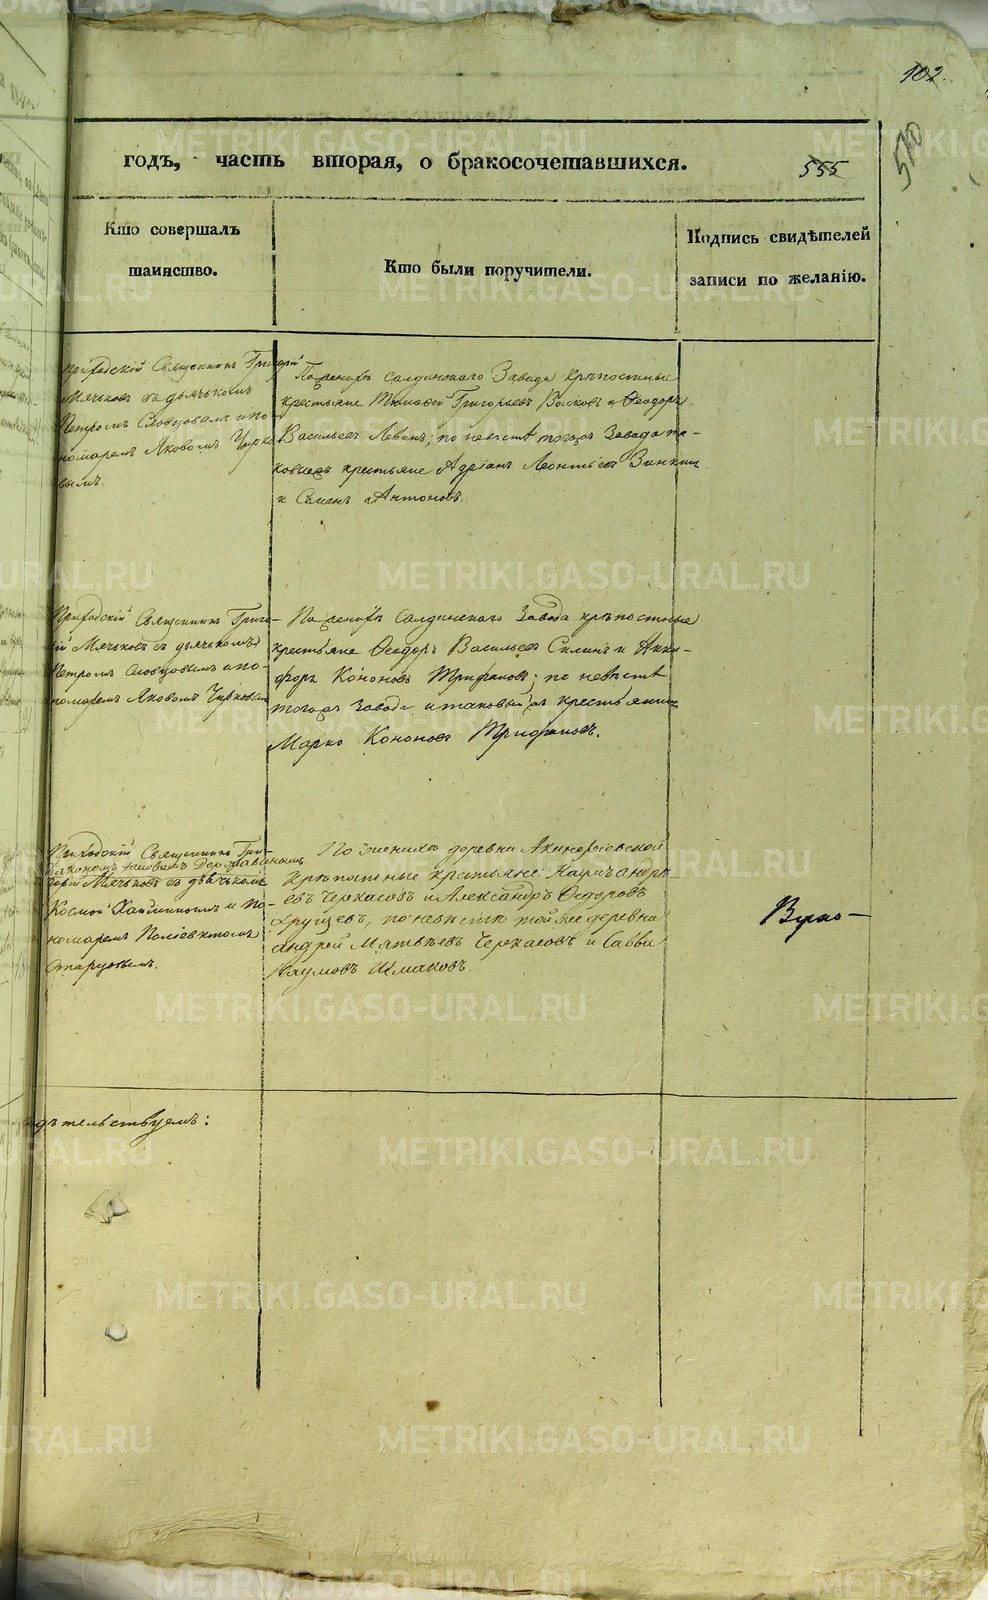 102.
510
годъ, часть вторая, о бракосочетавшихся.
555
Кто совершалъ
таинство.
Кто были поручители.
Подпись свидѣтелей
записи по желанію.
Приходскій Священникъ Григорій
Мячьковъ съ дьячькомъ
Петромъ Словцовымъ и по-
номаремъ Яковомъ Чирко
вымъ.
По женихѣ Салдинскаго Завода крѣпостные
крестьяне Тимофей Григорьевъ Волковъ и Ѳеодоръ
Васильевъ Левинъ; по невѣстѣ тогожъ Завода та-
ковыежъ крестьяне Адріанъ Леонтьевъ Зинкинъ
и Семенъ Антоновъ.
Приходскій Священникъ Григо-
ій Мячьковъ съ дьячькомъ
Петромъ Словцовымъ и по-
номаремъ Яковомъ Чирковымъ
По женихѣ Салдинскаго Завода крѣпостные
крестьяне Ѳеодоръ Васильевъ Силинъ и Ники-
форъ Кононовъ Трифановъ; по невѣстѣ
тогожъ Завода и таковый жъ крестьянинъ
Марко Кононовъ Трифановъ.
Приходскій Священникъ Гри-
Діакономъ
горій Мячьковъ съ дьячькомъ
Космой и по-
номаремъ Поліевктомъ
Старцовымъ.
По женихѣ деревни Акинфіевской
крѣпостные крестьяне: Карпъ Андре
евъ Черкасовъ и Александръ Ѳедоровъ
по невѣстѣ той же деревни
Андрей Матвѣевъ Черкасовъ и Савва
Наумовъ Шмаковъ.
Вѣрно —
дѣтельствуемъ:
METRIKI.GASO-URAL.RU